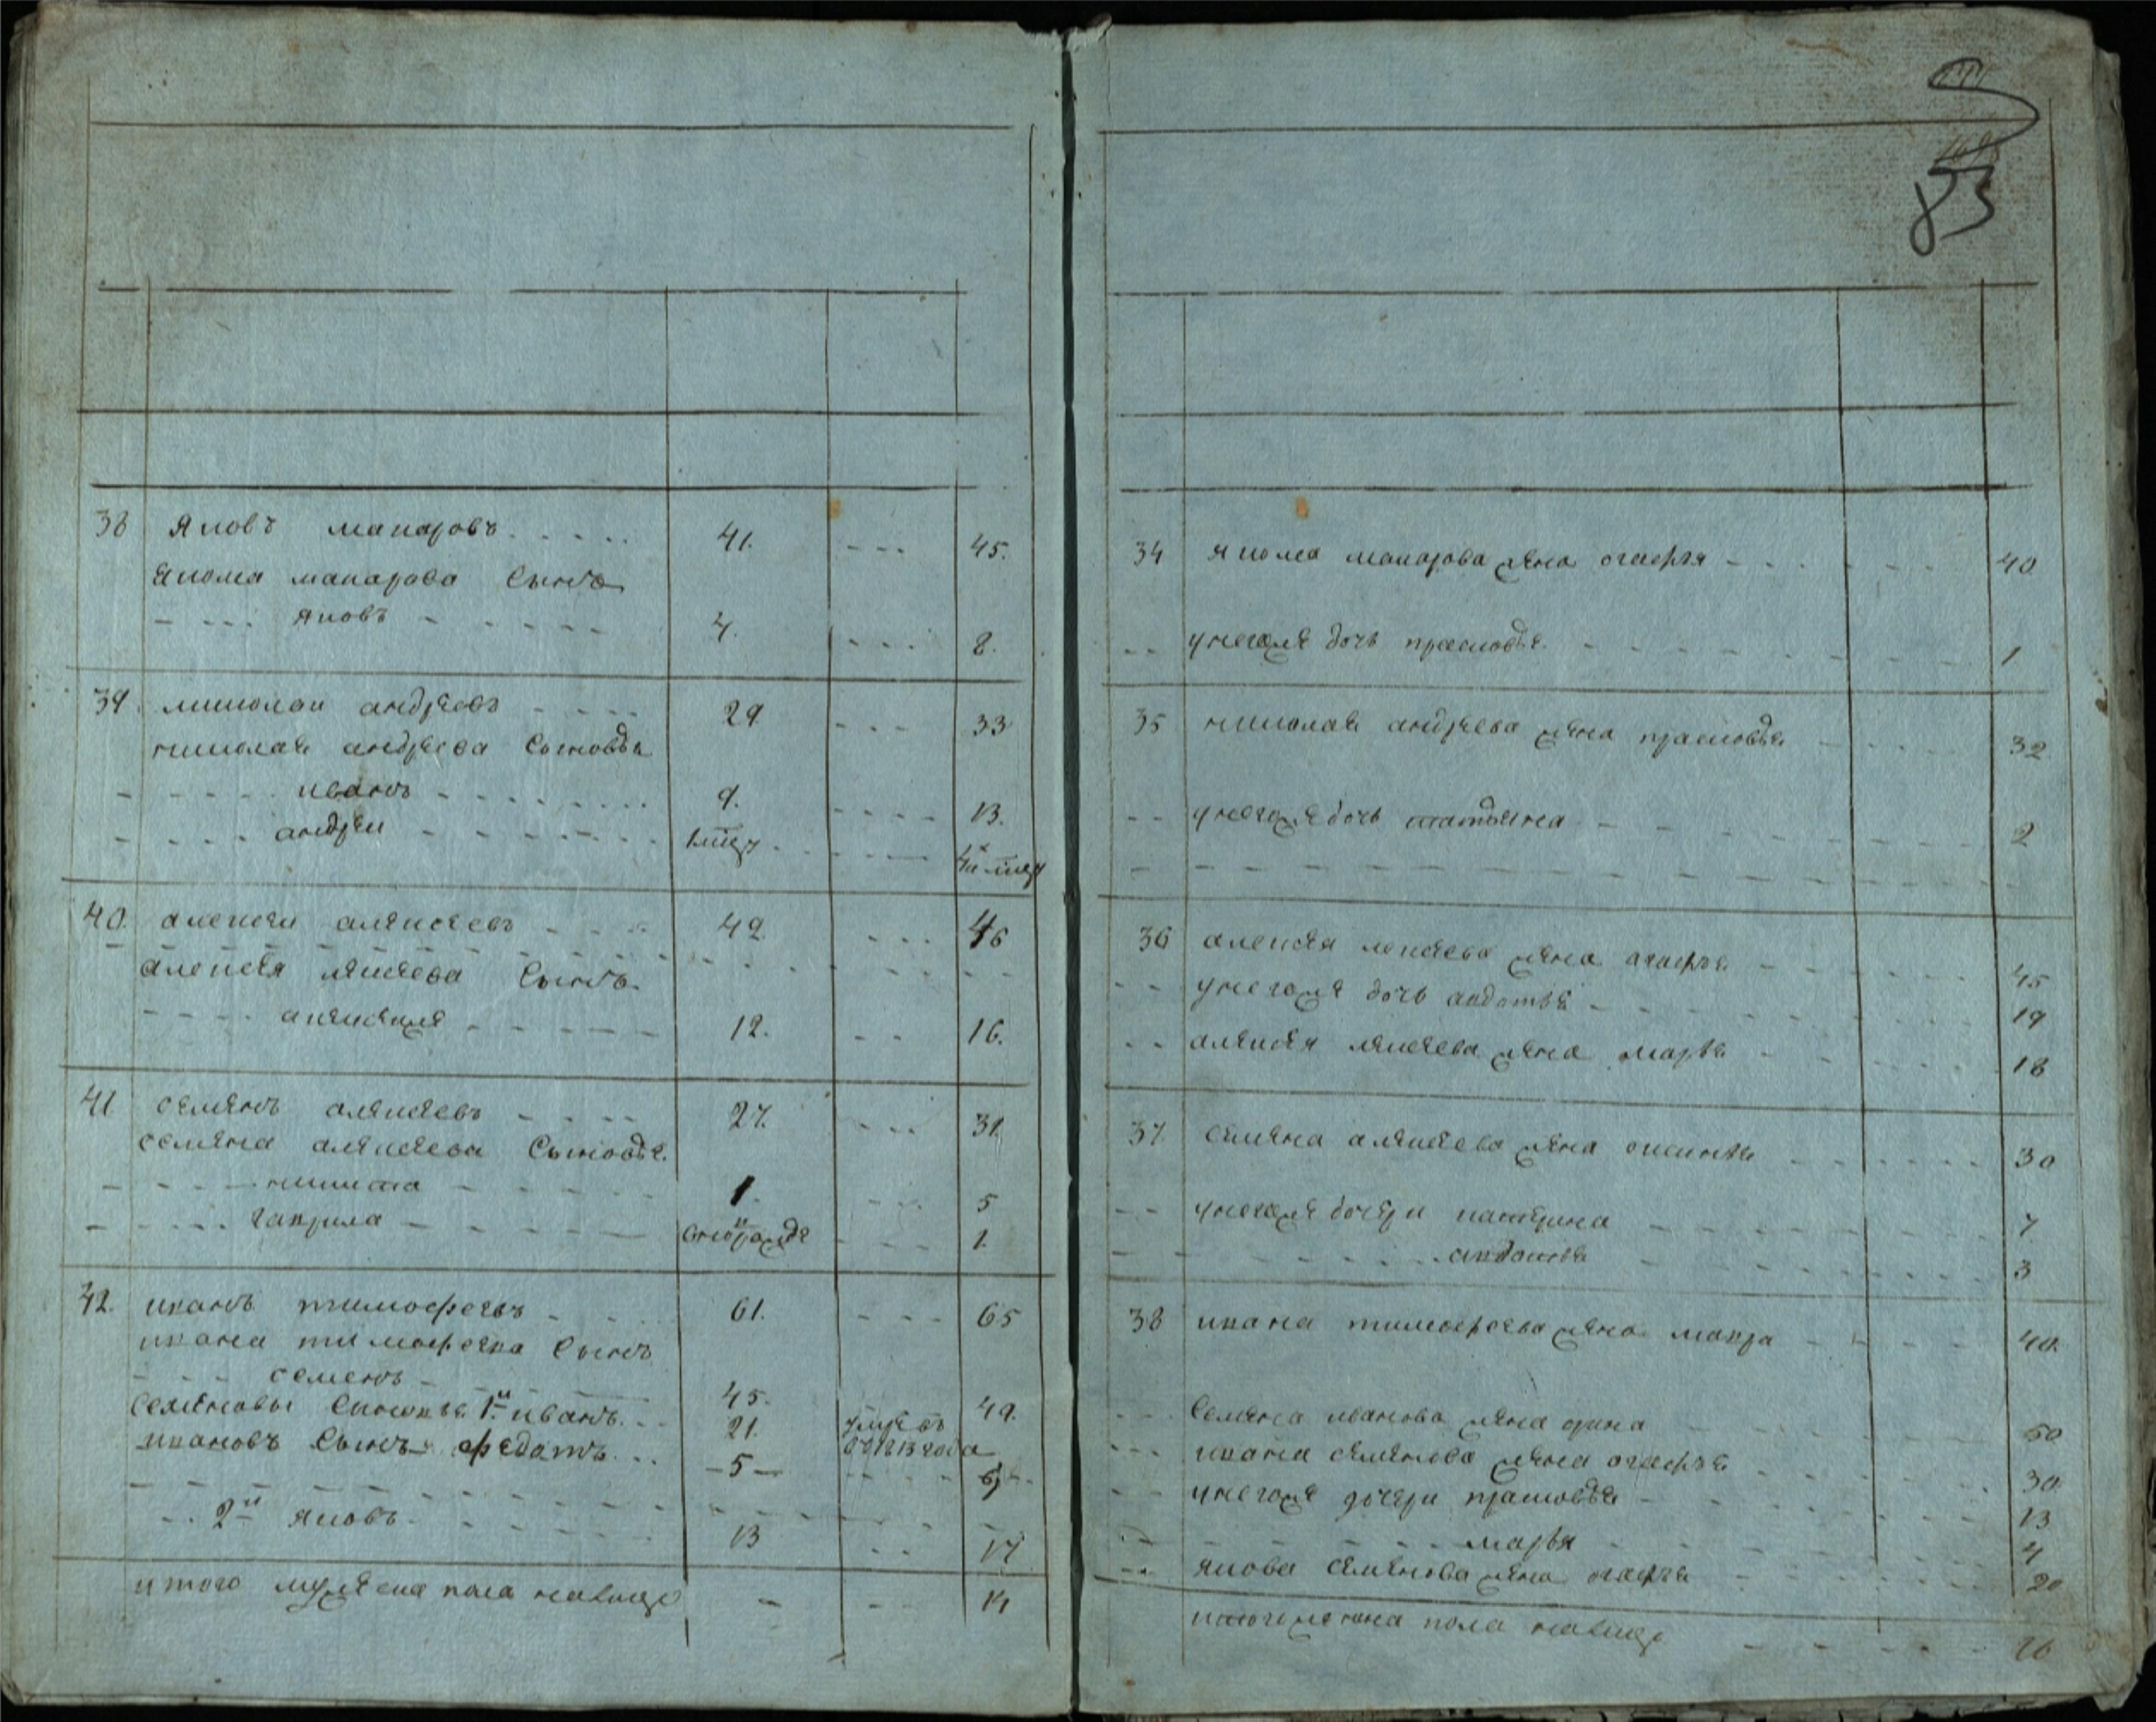 83
38 Яковъ макаровъ 41. 45.
Якова макарова Сынъ
яковъ 4. 8.
39 николаи андреевъ 29 33
николая андреева Сыновья
иванъ 9. 13.
андреи
40. алексеи алексеевъ 42 46
алексея
Сынъ
12. 16.
41 семенъ алексеевъ 27. 31
семена алексеева Сыновья
никита 1. 5
гаврила 1
42. иванъ тимофеевъ 61. 65
ивана тимофеева Сынъ
семенъ 45. 49.
семеновы 1й иванъ 21. умре въ 1813 года
ивановъ Сынъ федотъ 5
2й яковъ 13 17
итого мужеска пола налицо 14
34 якова макарова жена агафья 40
у негоже дочь прасковья 1
35 николая андреева жена прасковья 32
у негоже дочь татьяна 2
36 алексея жена агафья 45
у негоже дочь авдотья 19
жена марья 18
37 семена алексеева жена 30
у негоже дочери катерина 7
авдотья 3
38 ивана тимофеева жена мавра 40.
семена иванова жена арина 50
ивана семенова жена агафья 30
у негоже дочери прасковья 13
марья 4
якова семенова жена агафья 20
итого женска пола налицо 16